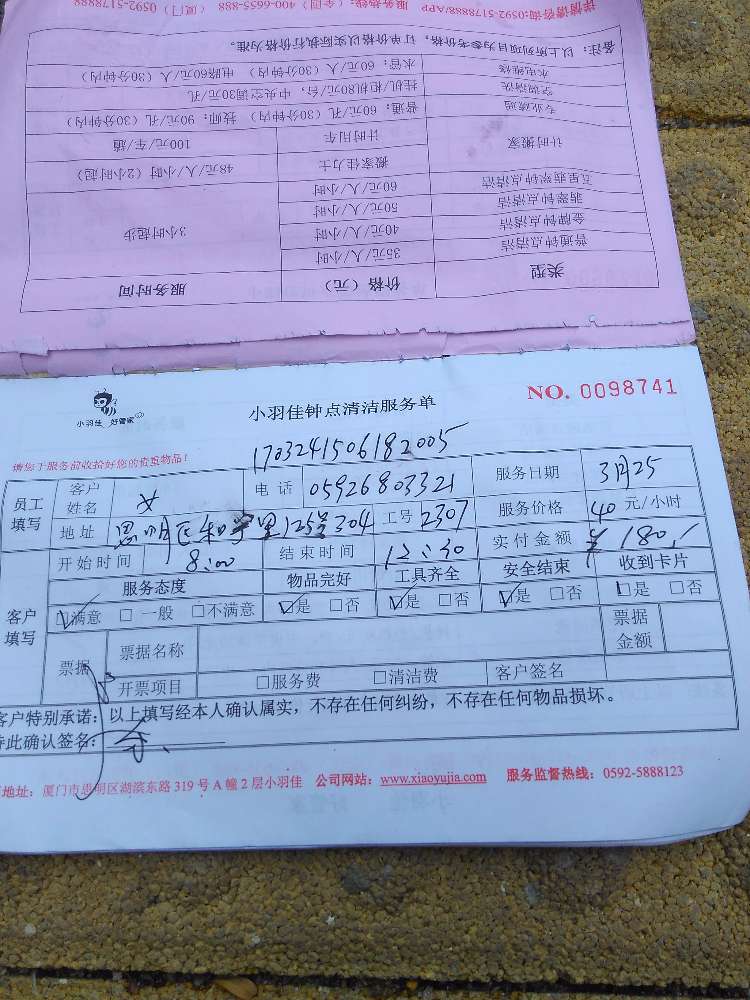 详情请咨询:0592-5178888/APP 服务热线:(全国)400-6655-888 (厦门)0592-5178888
备注:以上所列项目为参考价格,订单价格以实际执行价格为准。
水电维修 水管:60元/人(30分钟内) 电路60元/人(30分钟内)
空调清洗 挂机/柜机80元/台,中央空调30元/孔
专业疏通 普通:60元/孔(30分钟内) 技师:90元/孔(30分钟内)
计时搬家 计时用车 100元/车/趟
搬家佳力士 48元/人/小时(2小时起)
五星翡翠钟点清洁 60元/人/小时
翡翠钟点清洁 50元/人/小时
金牌钟点清洁 40元/人/小时 3小时起步
普通钟点清洁 35元/人/小时
类型 价格(元) 服务时间
小羽佳 好管家
小羽佳钟点清洁服务单
NO. 0098741
请您于服务前收拾好您的贵重物品!
1703241506182005
员工填写 客户姓名 电话 05926803321 服务日期 3月25
地址 思明区和宁里125号304 工号 2307 服务价格 40 元/小时
开始时间 8:00 结束时间 12:30 实付金额 ¥180
客户填写 服务态度 物品完好 工具齐全 安全结束 收到卡片
☑满意 □一般 □不满意 ☑是 □否 ☑是 □否 ☑是 □否 ☑是 □否
票据 票据名称 票据金额
开票项目 □服务费 □清洁费 客户签名
客户特别承诺:以上填写经本人确认属实,不存在任何纠纷,不存在任何物品损坏。
特此确认签名:
地址:厦门市思明区湖滨东路319号A幢2层小羽佳 公司网站:www.xiaoyujia.com 服务监督热线:0592-5888123